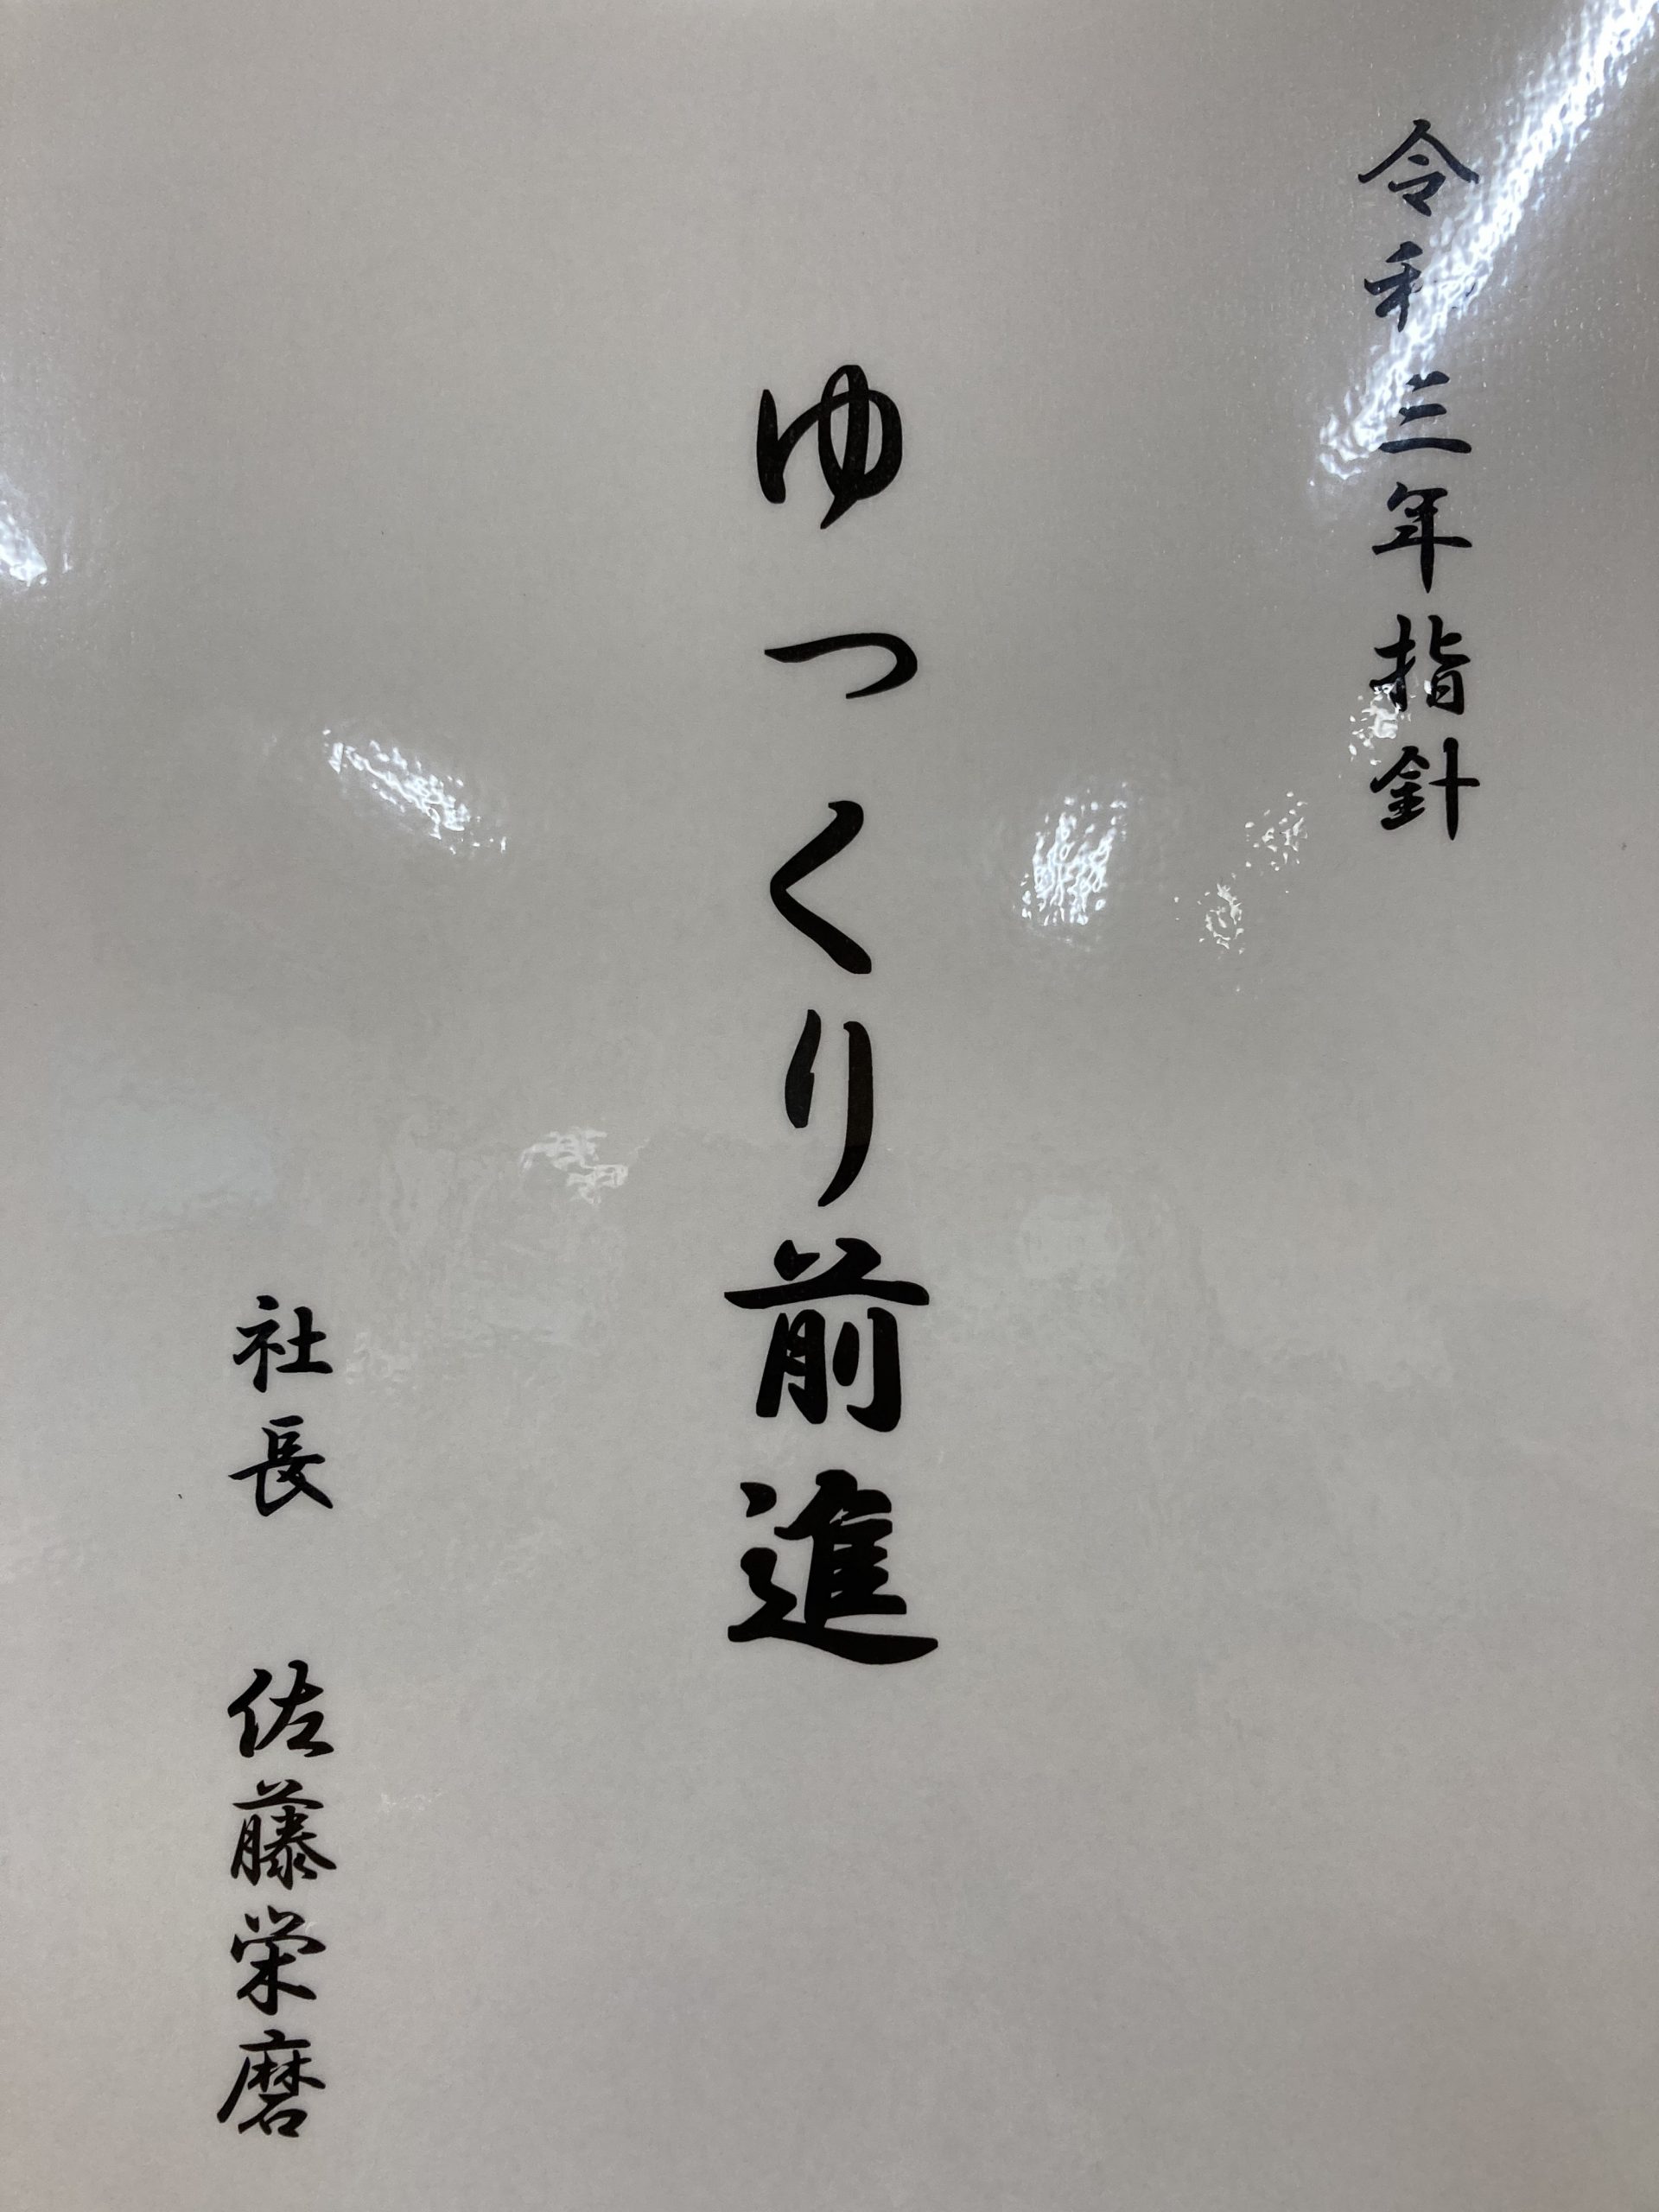 令和三年指針
ゆっくり前進
社長 佐藤栄磨